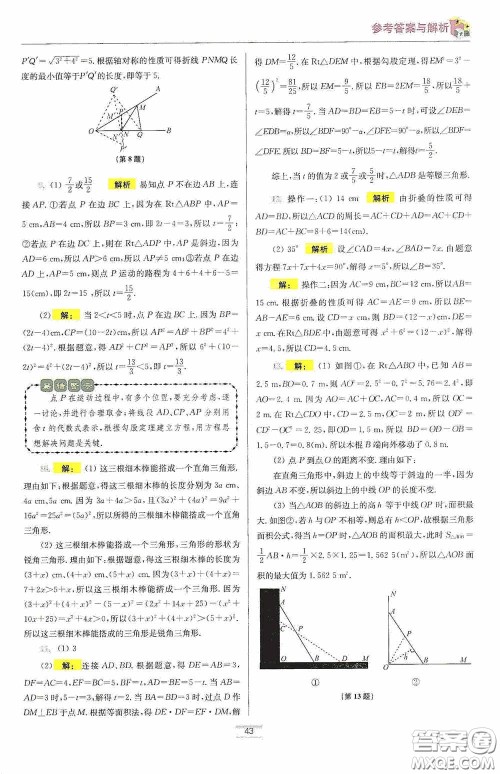 参考答案与解析
P'Q'=√(3²+4²)=5. 根据轴对称的性质可得折线 PNMQ 长
度的最小值等于 P'Q' 的长度,即等于 5.
P'
A
M
P
O
N
Q
B
Q'
(第 8 题)
(1) 7/2或15/2 解析 易知点 P 不在边 AB 上,连
接 AP. ①若点 P 在边 BC 上,因为在 Rt△ABP 中,AP=
5 cm,AB=4 cm,所以 BP=3 cm,即 2t-4=3,所以 t=7/2;
②若点 P 在边 CD 上,则在 Rt△ADP 中,AP 是斜边,因为
AD=6 cm,所以 AP>6 cm,所以 AP≠5 cm;③若点 P 在
边 AD 上,则点 P 运动的路程为 4+6+4+6-5=
15(cm),即 2t=15,所以 t=15/2.
(2) 解: 当 2<t<5 时,点 P 在边 BC 上,因为 BP=
(2t-4)cm,CP=(10-2t)cm,所以 AP²=AB²+BP²=4²+
(2t-4)². 根据题意,得 AD²+CP²=AP²,所以 6²+(10-
2t)²=4²+(2t-4)²,所以 t=13/3<5,即 t=13/3.
点 P 在运动过程中,有多个位置,要充分考虑,逐
一讨论,并进行合理取舍;将线段 AD,CP,AP 分别用
含 t 的代数式表示,根据勾股定理建立方程,用方程
思想解决问题是关键.
解: (1) 这三根细木棒能搭成一个直角三角形.
理由如下:根据题意,得这三根细木棒的长度分别为 3a cm,
4a cm,5a cm. 因为 3a+4a>5a,且(3a)²+(4a)²=9a²+
16a²=25a²=(5a)²,所以所得的三根细木棒能搭成一个直角
三角形.
(2) 这三根细木棒能搭成一个三角形,三角形的形状为
锐角三角形. 理由如下:根据题意,得这三根细木棒的长度为
(3+x) cm,(4+x) cm,(5+x) cm. 因为(3+x)+(4+x)=
7+2x>5+x,所以这三根细木棒能搭成一个三角形. 因为
(3+x)²+(4+x)²-(5+x)²=(2x²+14x+25)-(x²+
10x+25)=x²+4x>0,所以(3+x)²+(4+x)²>(5+x)².
所以这三根细木棒能搭成的三角形是锐角三角形.
(1) 3
(2) 解: 连接 AD,BD. 根据题意,得 DE=AB=3,
DF=AC=4,EF=BC=5,所以 AD=BE=CF=t. 当 AD=
AB=3 时,t=AD=3. 当 BA=BD=3 时,过点 D 作
DM⊥EB 于点 M. 根据等面积法,得 DE·DF=EF·DM,解
得 DM=12/5. 在 Rt△DEM 中,根据勾股定理,得 EM²=3²-
(12/5)²=81/25,所以 EM=9/5. 所以 EB=2EM=18/5,所以
t=5,解得 t=7/5. 当 AD=BD=EB=5-t 时,可设∠BDE=
∠EDB=α,所以∠BDF=90°-α,∠DFE=90°-α,所以
∠BDF=∠DFE,所以 BD=BF=t,所以 5-t=t,解得 t=5/2.
综上,当 t 的值为 3 或7/5或5/2时,△ADB 是等腰三角形.
操作一:(1) 14 cm 解析 由折叠的性质可得
AD=BD,所以△ACD 的周长=AC+CD+AD=AC+CD+
BD=AC+BC=8+6=14(cm).
(2) 35° 解析 设∠CAD=4x,∠BAD=7x. 由题意
得方程 7x+7x+4x=90°,解得 x=5°,所以∠B=35°.
解: 操作二:因为 AC=9 cm,BC=12 cm,所以 AB=
15 cm. 根据折叠的性质可得 AC=AE=9 cm,所以 BE=
AB-AE=6 cm. 设 CD=x cm,则 BD=(12-x)cm,DE=
x cm. 在 Rt△BDE 中,由题意可得方程 x²+6²=(12-x)²,
解得 x=4.5,所以 CD=4.5 cm.
解: (1) 如图①,在 Rt△ABO 中,已知 AB=
2.5 m,BO=0.7 m,则 AO²=2.5²-0.7²=2.4²,所以 AO=
2.4 m. 因为 AC=0.4 m,所以 OC=2 m,所以 OD²=
CD²-OC²=2.5²-2²=1.5²,所以 OD=1.5 m,所以 BD=
1.5-0.7=0.8(m),所以木棍 B 端向外移动了 0.8 m.
(2) 点 P 到点 O 的距离不变. 理由如下:
在直角三角形中,斜边上的中线等于斜边的一半,因为
斜边 AB 不变,所以斜边上的中线 OP 的长度不变.
(3) 当△AOB 的斜边上的高 h 等于中线 OP 时,面积最
大. 如图②,若 h 与 OP 不相等,则总有 h<OP,故根据三角形
面积公式,得当 h 与 OP 相等时,△AOB 面积最大,此时 S△AOB=
1/2 AB·h=1/2×2.5×1.25=1.5625(m²),所以△AOB 面
积的最大值为 1.5625 m².
①
②
(第 13 题)
43